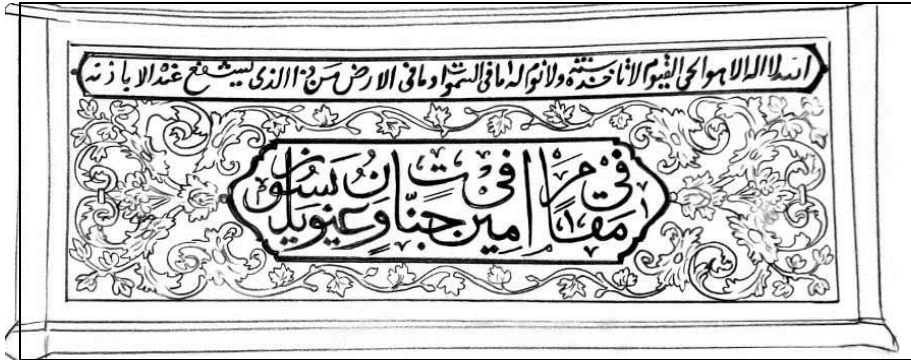 الله لا اله الا هو الحي القيوم لا تاخذه سنة ولا نوم له ما في السموات وما في الارض من ذا الذي يشفع عنده الا باذنه
في مقام امين في جنات وعيون يلبسون